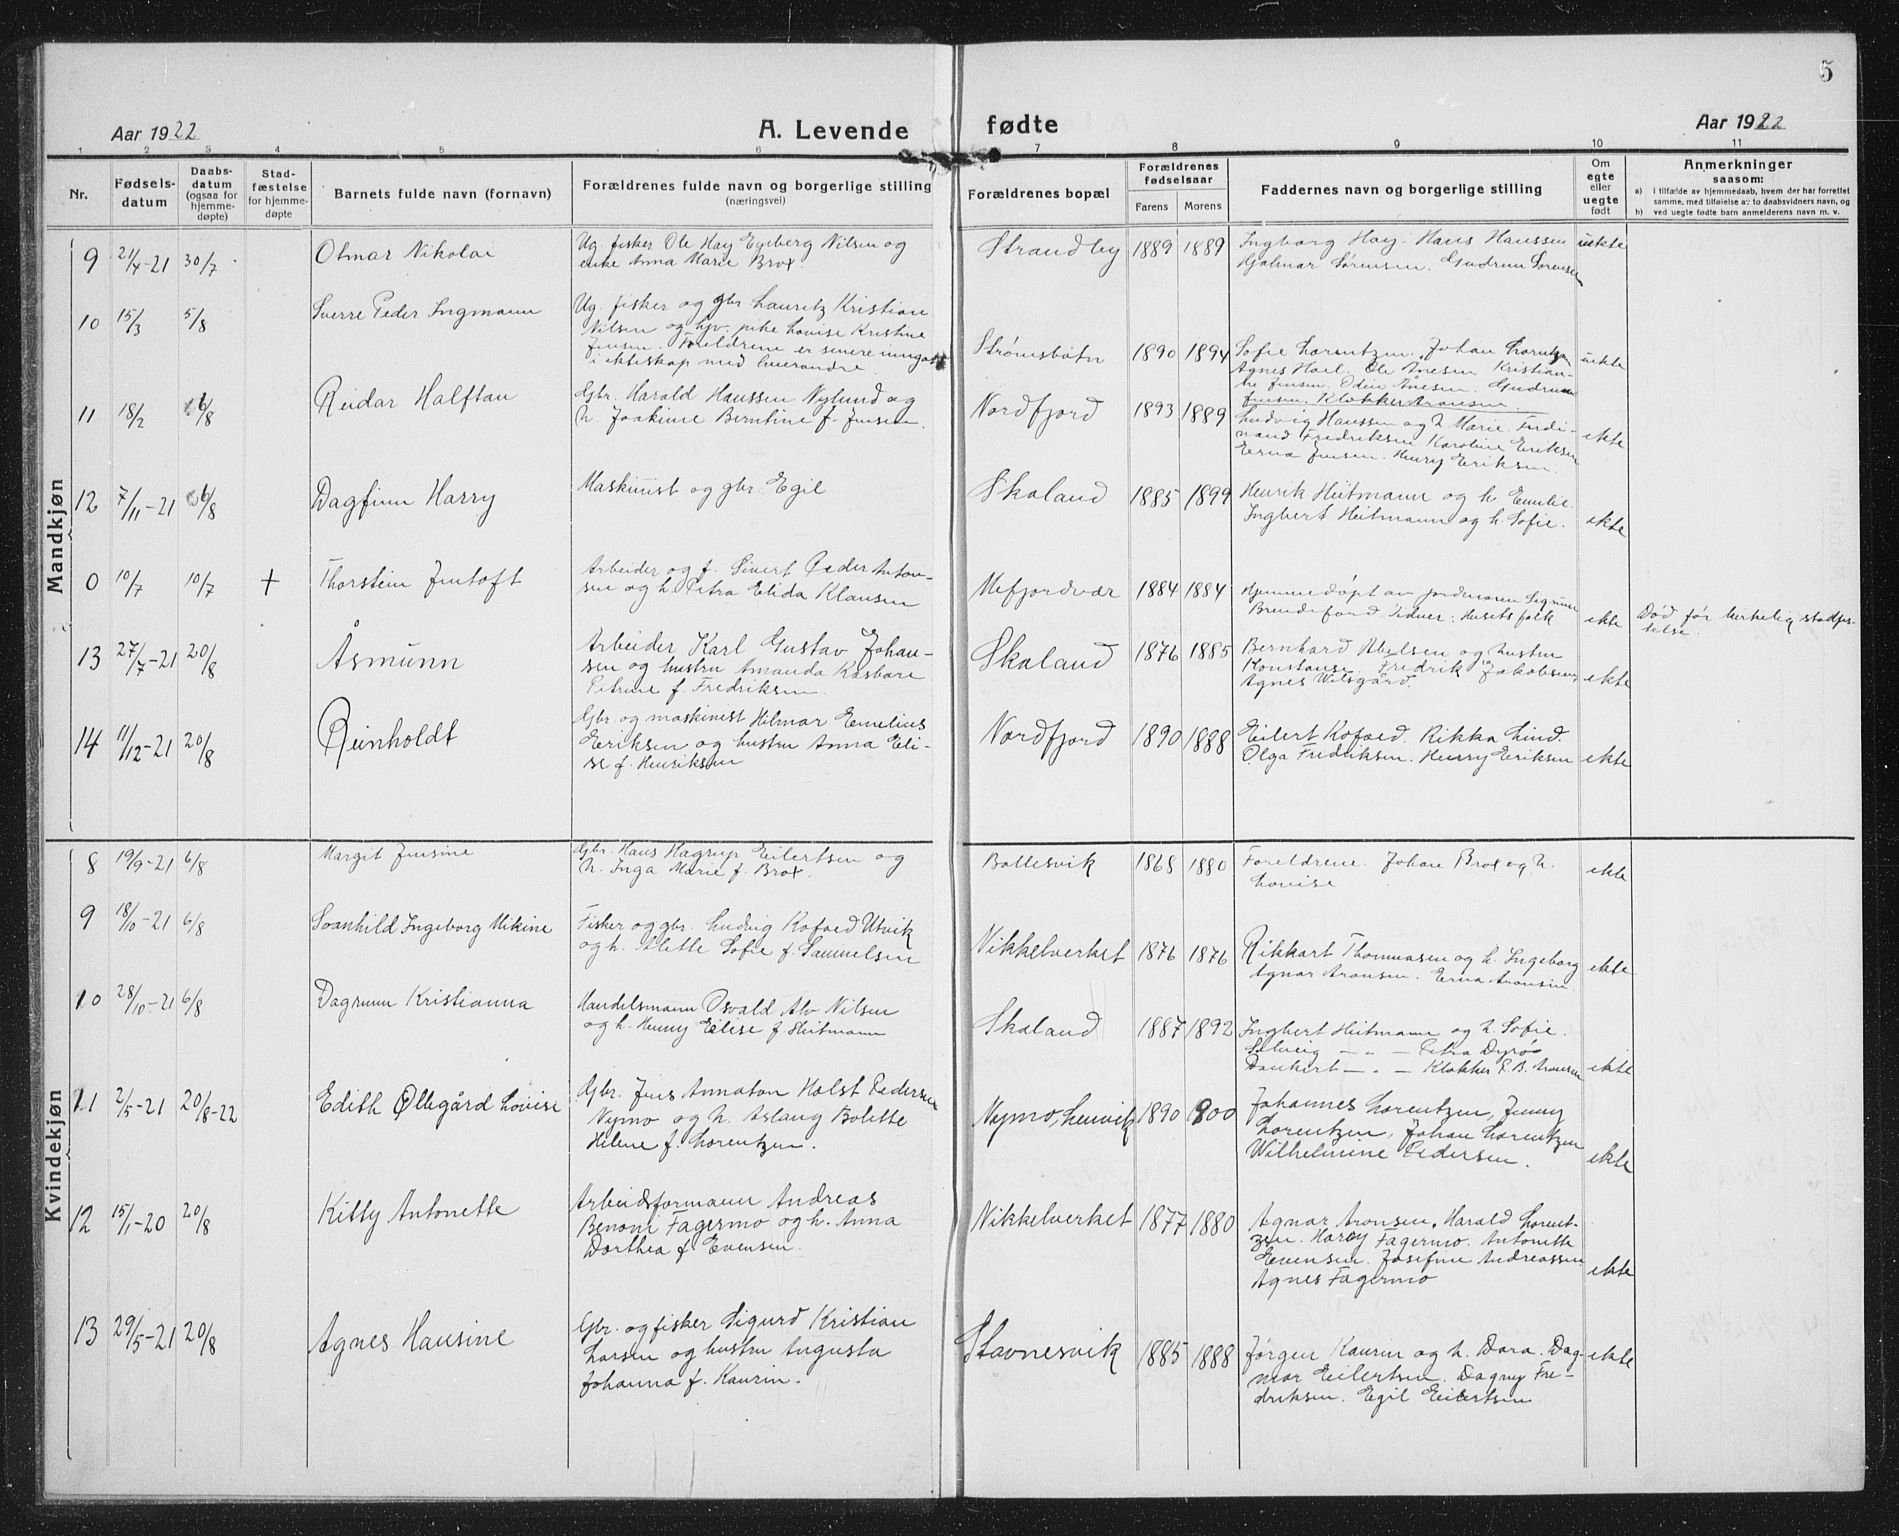 5
Aar 1922
A. Levende
fødte
Aar 1922
1 2 3 4 5 6 7 8 9 10 11
Nr.
Fødsels-
datum
Daabs-
datum
(ogsaa for
hjemme-
døpte)
Stad-
fæstelse
for hjemme-
døpte
Barnets fulde navn (fornavn)
Forældrenes fulde navn og borgerlige stilling
(næringsvei)
Forældrenes bopæl
Forældrenes
fødselsaar
Farens Morens
Faddernes navn og borgerlige stilling
Om
egte
eller
uegte
født
Anmerkninger
saasom:
a) i tilfælde av hjemmedaab, hvem der har forrettet
samme, med tilføielse av to daabsvidners navn, og
b) ved uegte fødte barn anmelderens navn m. v.
Mandkjøn
9 21/4-21 30/7 Otmar Nikolai
Ug. fisker Ole Hay Enberg Nilsen og
enke Anna Marie Brox.
Strandby 1889 1889
Ingborg Hay. Hans Hanssen
Hjalmar Sørensen. Gudrun Sørensen
uekte
10 15/3 5/8 Sverre Peder Ingmann
Ug. fisker og gbr Lauritz Kristian
Nilsen og hjv. pike Lovise Kristine
Jensen. Foreldrene er senere inngått
i ekteskap med hverandre.
Strømsbotn 1890 1894
Sofie Lorentzen. Johan Lorentzen
Agnes Hoel. Ole Anesen Kristian-
ne Jensen. Odin Anesen. Gudrun
Jensen. Klokker Aronsen.
uekte
11 18/2 6/8 Reidar Halftan
Gbr. Harald Hanssen Nylund og
h. Joakime Berntine f. Jensen.
Nordfjord 1893 1889
Ludvig Hanssen og h. Marie. Ferdi-
nand Fredriksen Karoline Eriksen
Erna Jensen. Henry Eriksen.
ekte
12 7/11-21 6/8 Dagfinn Harry
Maskinist og gbr. Egil
Skaland 1885 1899
Henrik Heitmann og h. Emelie.
Ingbert Heitmann og h. Sofie.
ekte
0 10/7 10/7 + Thorstein Jentoft
Arbeider og f. Sivert Peder Anton-
sen og h. Petra Elida Klausen
Mefjordvær 1884 1884
Hjemmedøpt av jordmoren Sigrun
Brendeford. Vidner: Husets folk
ekte
Død før kirkelig stadfes-
telse.
13 27/7-21 20/8 Åsmunn
Arbeider Karl Gustav Johan-
sen og hustru Amanda Kasbare
Petrine f. Fredriksen.
Skaland 1876 1885
Bernhard Abelsen og hustru
Konstanse. Fredrik Jakobsen,
Agnes Wilsgård.
ekte
14 11/12-21 20/8 Reinholdt
Gbr. og maskinist Hilmar Emelius
Eriksen og hustru Anna Eli-
se f. Henriksen
Nordfjord 1890 1888
Eilert Kofoed. Rikka Lind.
Olga Fredriksen. Henry Eriksen
ekte
Kvindekjøn
8 19/9-21 6/8 Margit Jensine
Gbr. Hans Hagrup Eilertsen og
h. Inga Marie f. Brox.
Ballesvik 1868 1880
Foreldrene. Johan Brox og h.
Lovise
ekte
9 18/10-21 6/8 Svanhild Ingeborg Mikine
Fisker og gbr. Ludvig Kofoed Utvik
og h. Alette Sofie f. Samuelsen
Nikkelverket 1876 1876
Rikkart Thomassen og h. Ingeborg
Agnar Aronsen. Erna Aronsen.
ekte
10 28/10-21 6/8 Dagrunn Kristianna
Handelsmann Osvald Alv Nilsen
og h. Henny Elise f. Heitmann
Skaland 1887 1892
Ingbert Heitmann og h. Sofie.
Solveig — „ — Petra Dyrøs
Dankert — „ — Klokker E. B. Aronsen
ekte
11 2/5-21 20/8-22 Edith Øllegård Lovise
Gbr. Jens Annaton Holst Pedersen
Nymo og h. Aslaug Bolette
Helene f. Lorentzen.
Nymo, Lenvik 1890 900
Johannes Lorentzen, Jenny
Lorentzen, Johan Lorentzen
Wilhelmine Pedersen.
ekte
12 15/1-20 20/8 Kitty Antonette
Arbeidsformann Andreas
Benoni Fagermo og h. Anna
Dorthea f. Evensen.
Nikkelverket 1877 1880
Agnar Aronsen. Harald Lorent-
zen. Harry Fagermo. Antonette
Evensen. Josefine Andreassen
Agnes Fagermo
ekte
13 29/5-21 20/8 Agnes Hansine
Gbr. og fisker Sigurd Kristian
Larsen og hustru Augusta
Johanna f. Kaurin.
Stavnesvik 1885 1888
Jørgen Kaurin og h. Dora. Dag-
mar Eilertsen. Dagny Fre-
driksen. Egil Eilertsen
ekte